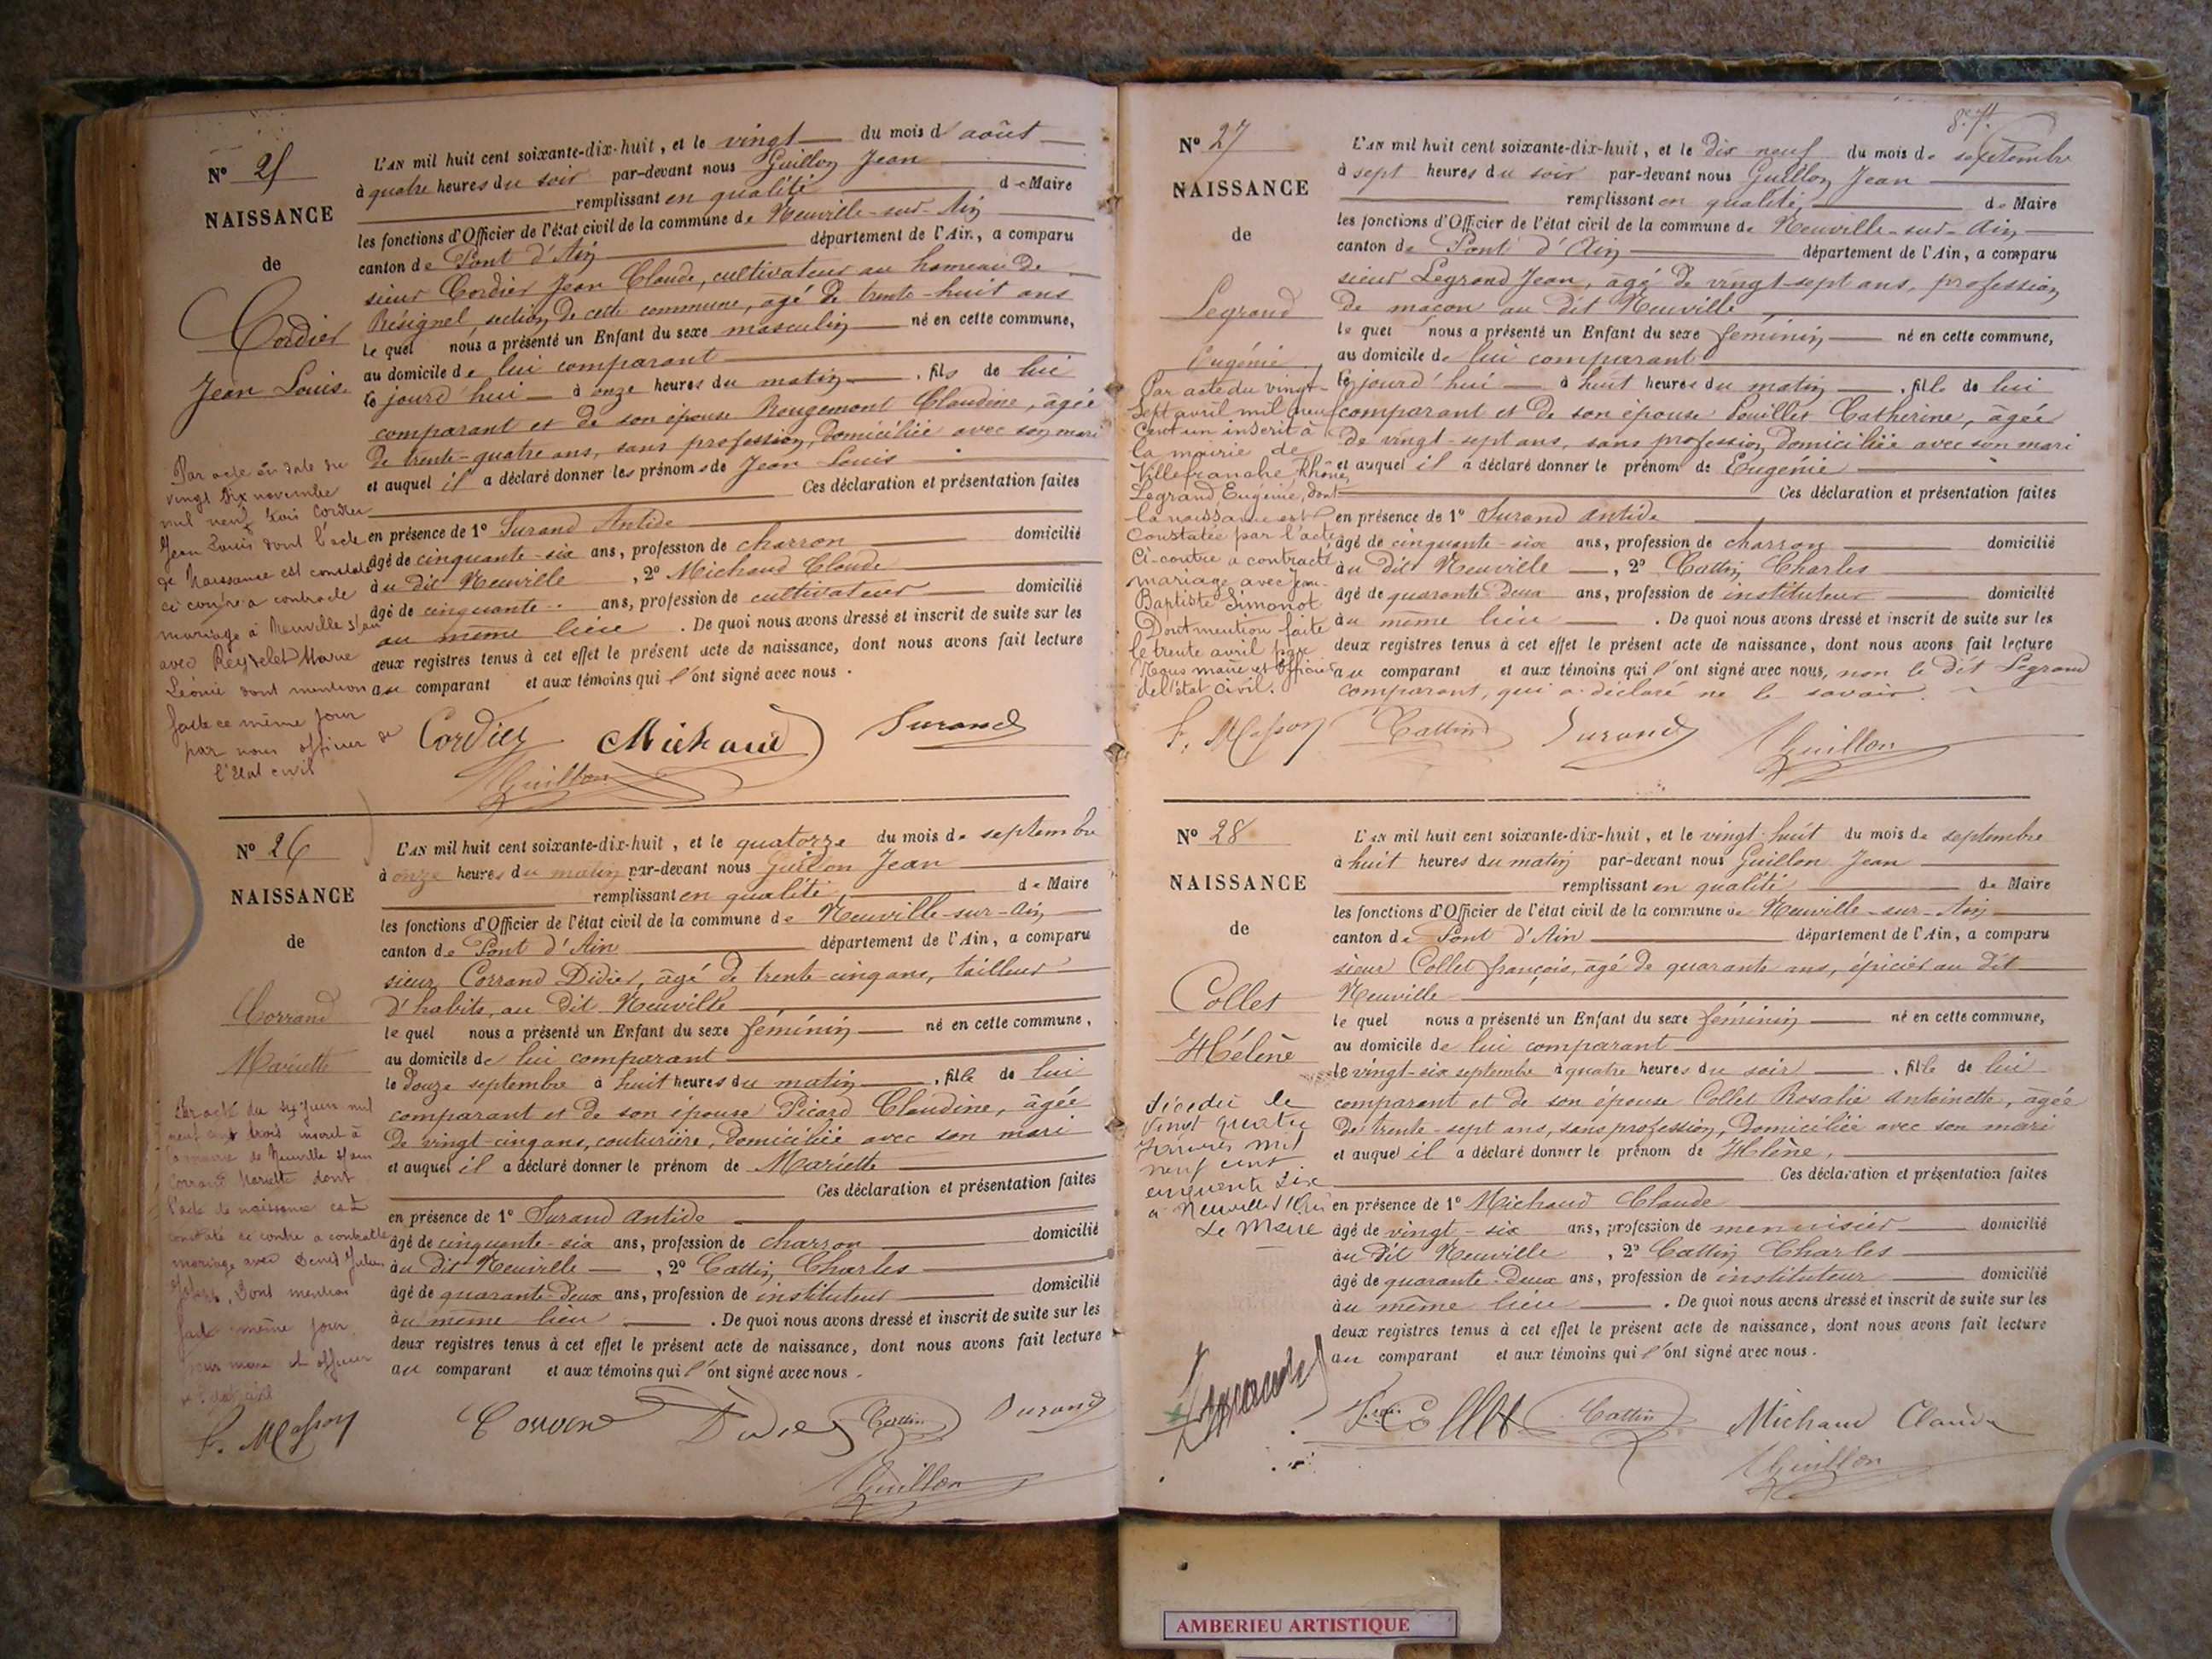 N° 25
NAISSANCE
de
Cordier
Jean Louis.
Par acte en date du
vingt six novembre
mil neuf trois Cordier
Jean Louis dont l'acte
de Naissance est constaté
ci contre a contracté
mariage à Neuville s/ain
avec Reydelet Marie
Léonie dont mention
faite ce même jour
par nous officier de
l'Etat civil
L'AN mil huit cent soixante-dix-huit, et le vingt du mois d'août
à quatre heures du soir par-devant nous Guillon Jean
remplissant en qualité de Maire
les fonctions d'Officier de l'état civil de la commune de Neuville-sur-Ain
canton de Pont d'Ain département de l'Ain, a comparu
sieur Cordier Jean Claude, cultivateur au hameau de
Résignel, section de cette commune, âgé de trente-huit ans
le quel nous a présenté un Enfant du sexe masculin né en cette commune,
au domicile de lui comparant
le jourd'hui à onze heures du matin, fils de lui
comparant et de son épouse Rougemont Claudine, âgée
de trente-quatre ans, sans profession, domiciliée avec son mari
et auquel il a déclaré donner les prénoms de Jean Louis
Ces déclaration et présentation faites
en présence de 1° Durand Antide
âgé de cinquante-six ans, profession de charron domicilié
au dit Neuville, 2° Michaud Claude
âgé de cinquante ans, profession de cultivateur domicilié
au même lieu. De quoi nous avons dressé et inscrit de suite sur les
deux registres tenus à cet effet le présent acte de naissance, dont nous avons fait lecture
au comparant et aux témoins qui l'ont signé avec nous.
Cordier Michaud Durand
Guillon
N° 26
NAISSANCE
de
Corrand
Mariette
Par acte du six Juin mil
neuf cent trois inscrit à
la mairie de Neuville s/ain
Corrand Mariette dont
l'acte de naissance est
constaté ci contre a contracté
mariage avec Denis Julien
dont mention
faite même jour
nous maire et officier
de l'état civil
F. Masson
L'AN mil huit cent soixante-dix-huit, et le quatorze du mois de septembre
à onze heures du matin par-devant nous Guillon Jean
remplissant en qualité de Maire
les fonctions d'Officier de l'état civil de la commune de Neuville-sur-Ain
canton de Pont d'Ain département de l'Ain, a comparu
sieur Corrand Didier, âgé de trente-cinq ans, tailleur
d'habits, au dit Neuville
le quel nous a présenté un Enfant du sexe féminin né en cette commune,
au domicile de lui comparant
le douze septembre à huit heures du matin, fille de lui
comparant et de son épouse Picard Claudine, âgée
de vingt-cinq ans, couturière, domiciliée avec son mari
et auquel il a déclaré donner le prénom de Mariette
Ces déclaration et présentation faites
en présence de 1° Durand Antide
âgé de cinquante-six ans, profession de charron domicilié
au dit Neuville, 2° Cattin Charles
âgé de quarante-deux ans, profession de instituteur domicilié
au même lieu. De quoi nous avons dressé et inscrit de suite sur les
deux registres tenus à cet effet le présent acte de naissance, dont nous avons fait lecture
au comparant et aux témoins qui l'ont signé avec nous.
Corrand Didier Cattin Durand
Guillon
N° 27
NAISSANCE
de
Legrand
Eugénie
Par acte du vingt-
sept avril mil neuf
cent un inscrit à
la mairie de
Villefranche Rhône,
Legrand Eugénie, dont
la naissance est
constatée par l'acte
ci-contre a contracté
mariage avec Jean-
Baptiste Simonot
Dont mention faite
le trente avril par
Nous maire et officier
de l'état civil.
F. Masson
L'AN mil huit cent soixante-dix-huit, et le dix neuf du mois de septembre
à sept heures du soir par-devant nous Guillon Jean
remplissant en qualité de Maire
les fonctions d'Officier de l'état civil de la commune de Neuville-sur-Ain
canton de Pont d'Ain département de l'Ain, a comparu
sieur Legrand Jean, âgé de vingt-sept ans, profession
de maçon au dit Neuville
le quel nous a présenté un Enfant du sexe féminin né en cette commune,
au domicile de lui comparant
le jourd'hui à huit heures du matin, fille de lui
comparant et de son épouse Pouillet Catherine, âgée
de vingt-sept ans, sans profession, domiciliée avec son mari
et auquel il a déclaré donner le prénom de Eugénie
Ces déclaration et présentation faites
en présence de 1° Durand Antide
âgé de cinquante-six ans, profession de charron domicilié
au dit Neuville, 2° Cattin Charles
âgé de quarante deux ans, profession de instituteur domicilié
au même lieu. De quoi nous avons dressé et inscrit de suite sur les
deux registres tenus à cet effet le présent acte de naissance, dont nous avons fait lecture
au comparant et aux témoins qui l'ont signé avec nous, non le dit Legrand
comparant, qui a déclaré ne le savoir.
Cattin Durand Guillon
N° 28
NAISSANCE
de
Collet
Hélène
Décédée le
vingt quatre
Janvier mil
neuf cent
cinquante six
à Neuville s/Ain
Le Maire
L'AN mil huit cent soixante-dix-huit, et le vingt-huit du mois de septembre
à huit heures du matin par-devant nous Guillon Jean
remplissant en qualité de Maire
les fonctions d'Officier de l'état civil de la commune de Neuville-sur-Ain
canton de Pont d'Ain département de l'Ain, a comparu
sieur Collet françois, âgé de quarante ans, épicier au dit
Neuville
le quel nous a présenté un Enfant du sexe féminin né en cette commune,
au domicile de lui comparant
le vingt-six septembre à quatre heures du soir, fille de lui
comparant et de son épouse Collet Rosalie Antoinette, âgée
de trente-sept ans, sans profession, domiciliée avec son mari
et auquel il a déclaré donner le prénom de Hélène,
Ces déclaration et présentation faites
en présence de 1° Michaud Claude
âgé de vingt-six ans, profession de menuisier domicilié
au dit Neuville, 2° Cattin Charles
âgé de quarante-deux ans, profession de instituteur domicilié
au même lieu. De quoi nous avons dressé et inscrit de suite sur les
deux registres tenus à cet effet le présent acte de naissance, dont nous avons fait lecture
au comparant et aux témoins qui l'ont signé avec nous.
Collet Cattin Michaud Claude
Guillon
AMBERIEU ARTISTIQUE